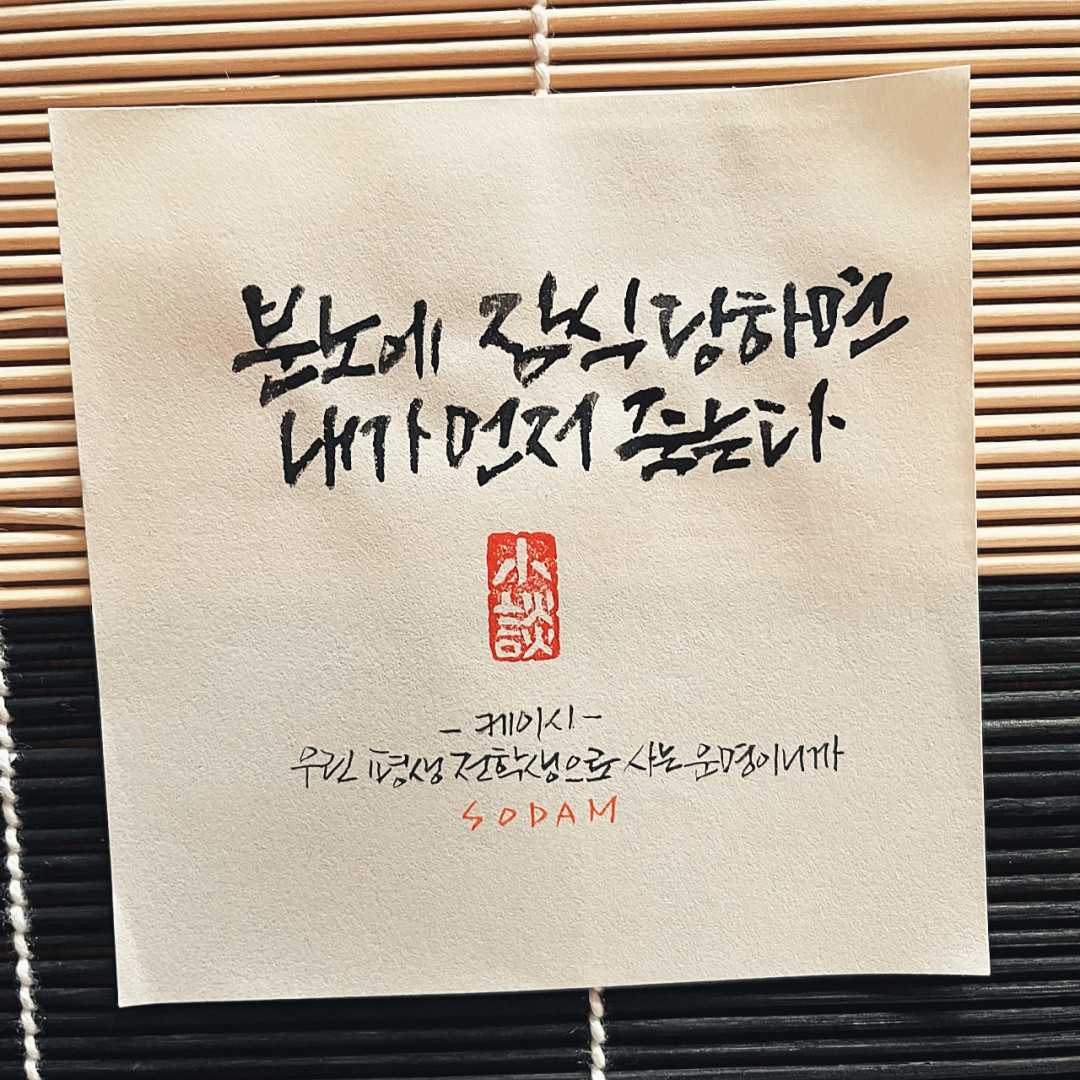 분노에 잠식 당하면
내가 먼저 죽는다
小談
- 케이시 -
우린 평생 전학생으로 사는 운명이니까
SODAM